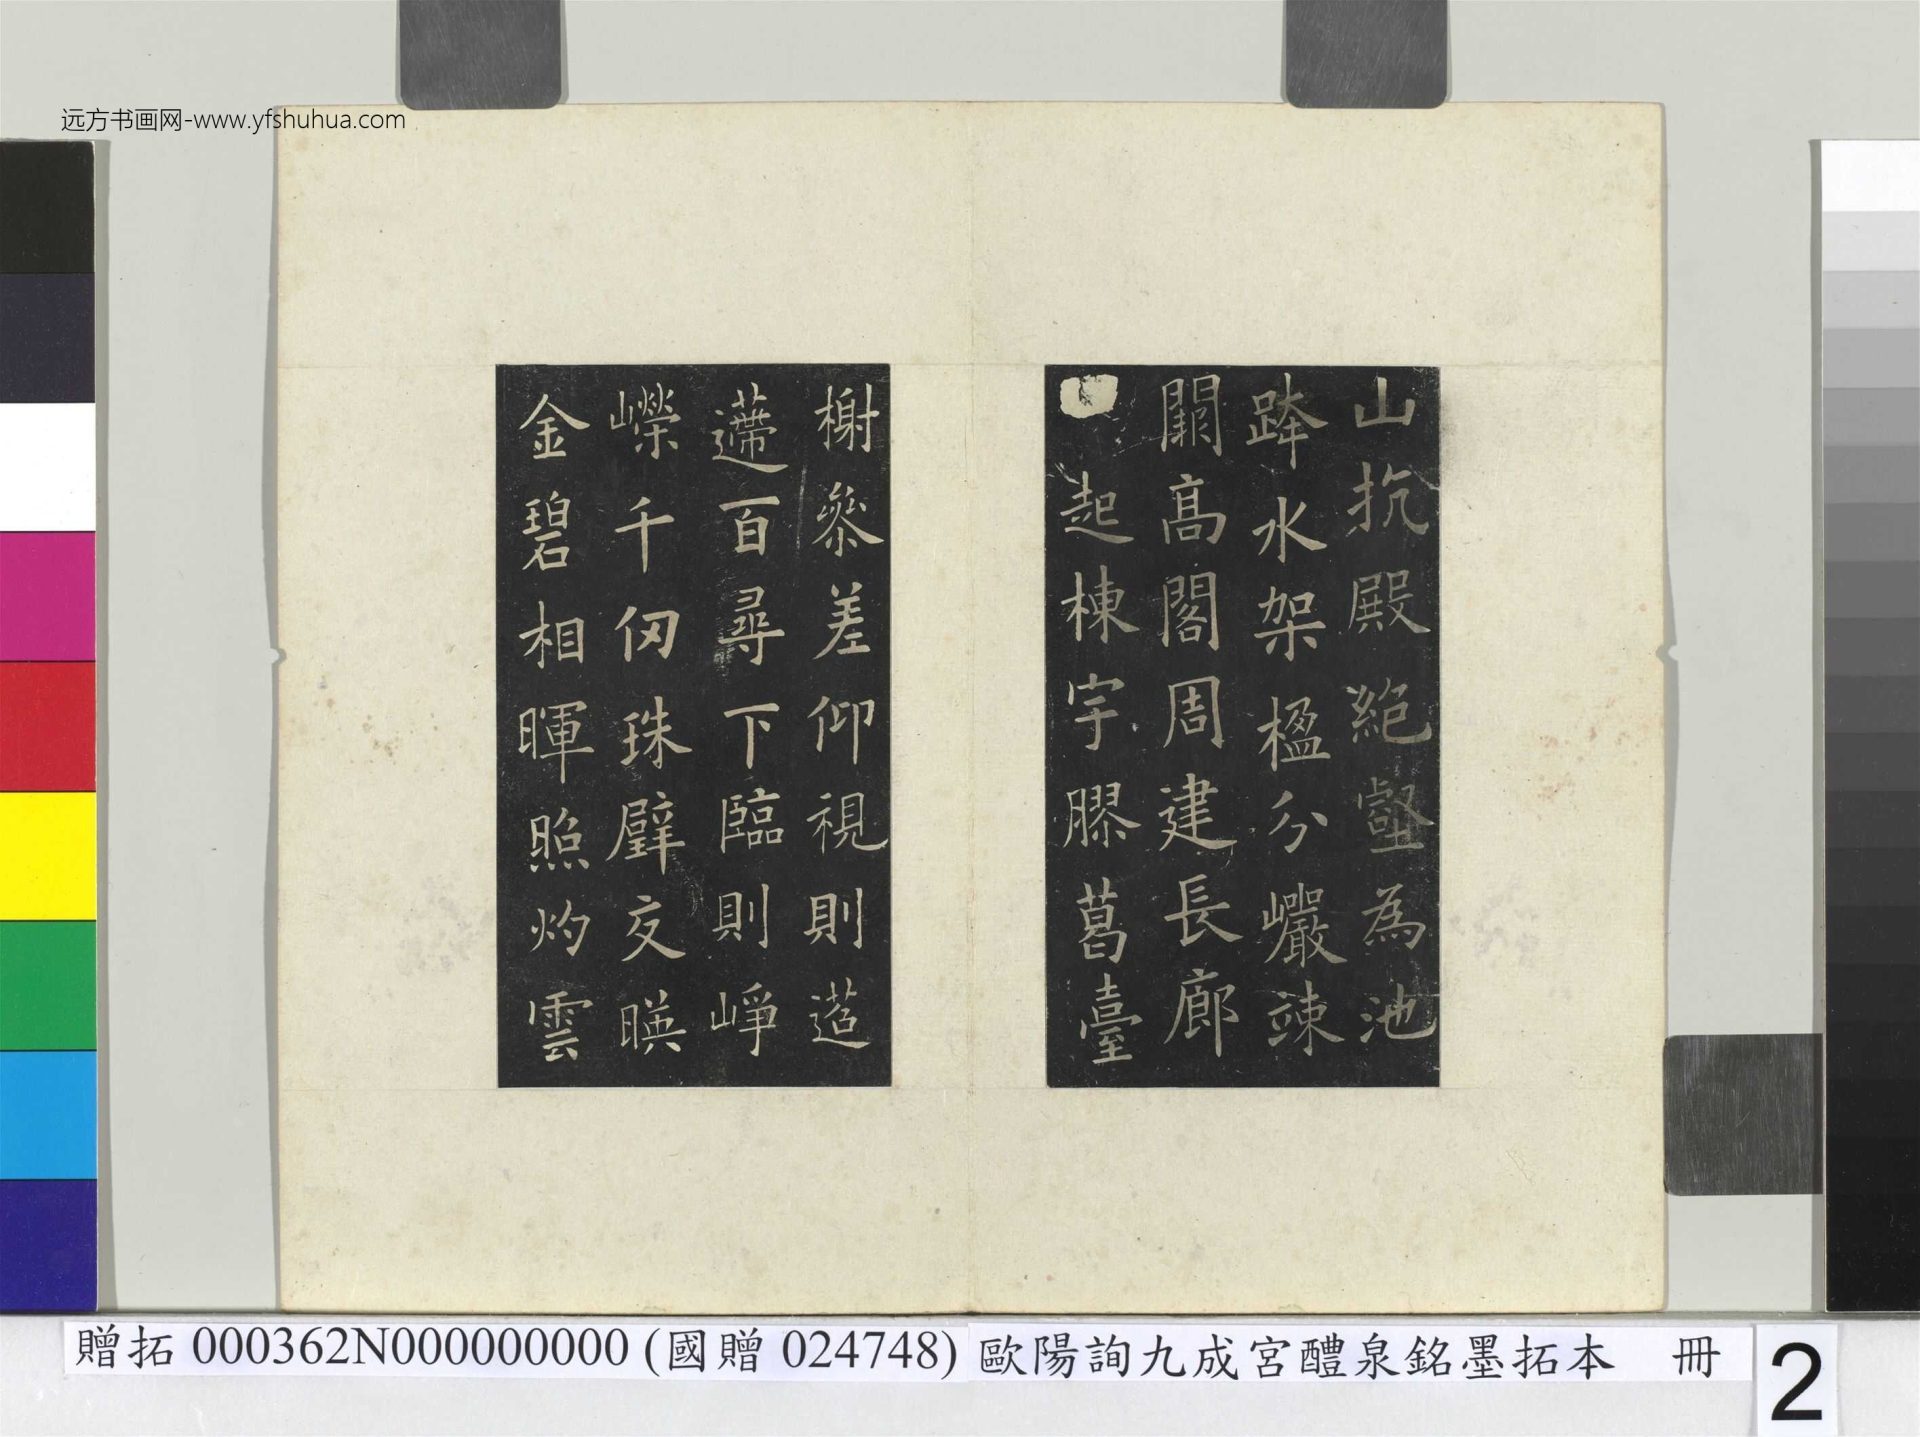 远方书画网-www.yfshuhua.com
山抗殿絕壑為池
跨水架楹分巖竦
闕高閣周建長廊
起棟宇膠葛臺
榭叅差仰視則迢
遰百尋下臨則崢
嶸千仞珠璧交暎
金碧相暉照灼雲
贈拓 000362N000000000 (國贈 024748) 歐陽詢九成宮醴泉銘墨拓本 冊
2